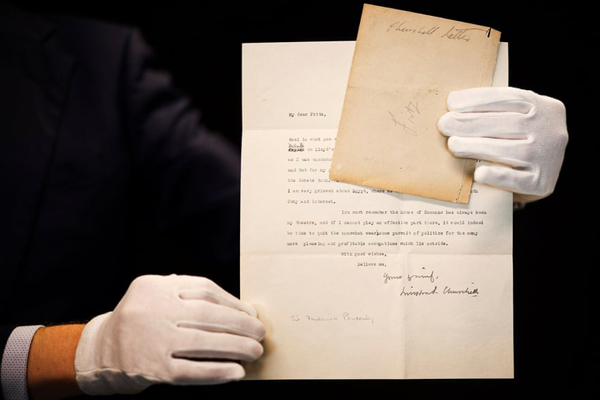 Churchill letter
Fritz
My dear Fritz,
on Lloyd's
as I was
and but for my
the debate
I am very grieved about Egypt, where
Duty and interest.
You must remember the house of Commons has always been
my theatre, and if I cannot play an effective part there, it would indeed
be time to quit the somewhat wearisome pursuit of politics for the many
more pleasing and profitable occupations which lie outside.
With good wishes,
Believe me,
Yours
Winston Churchill
Sir Frederick Ponsonby